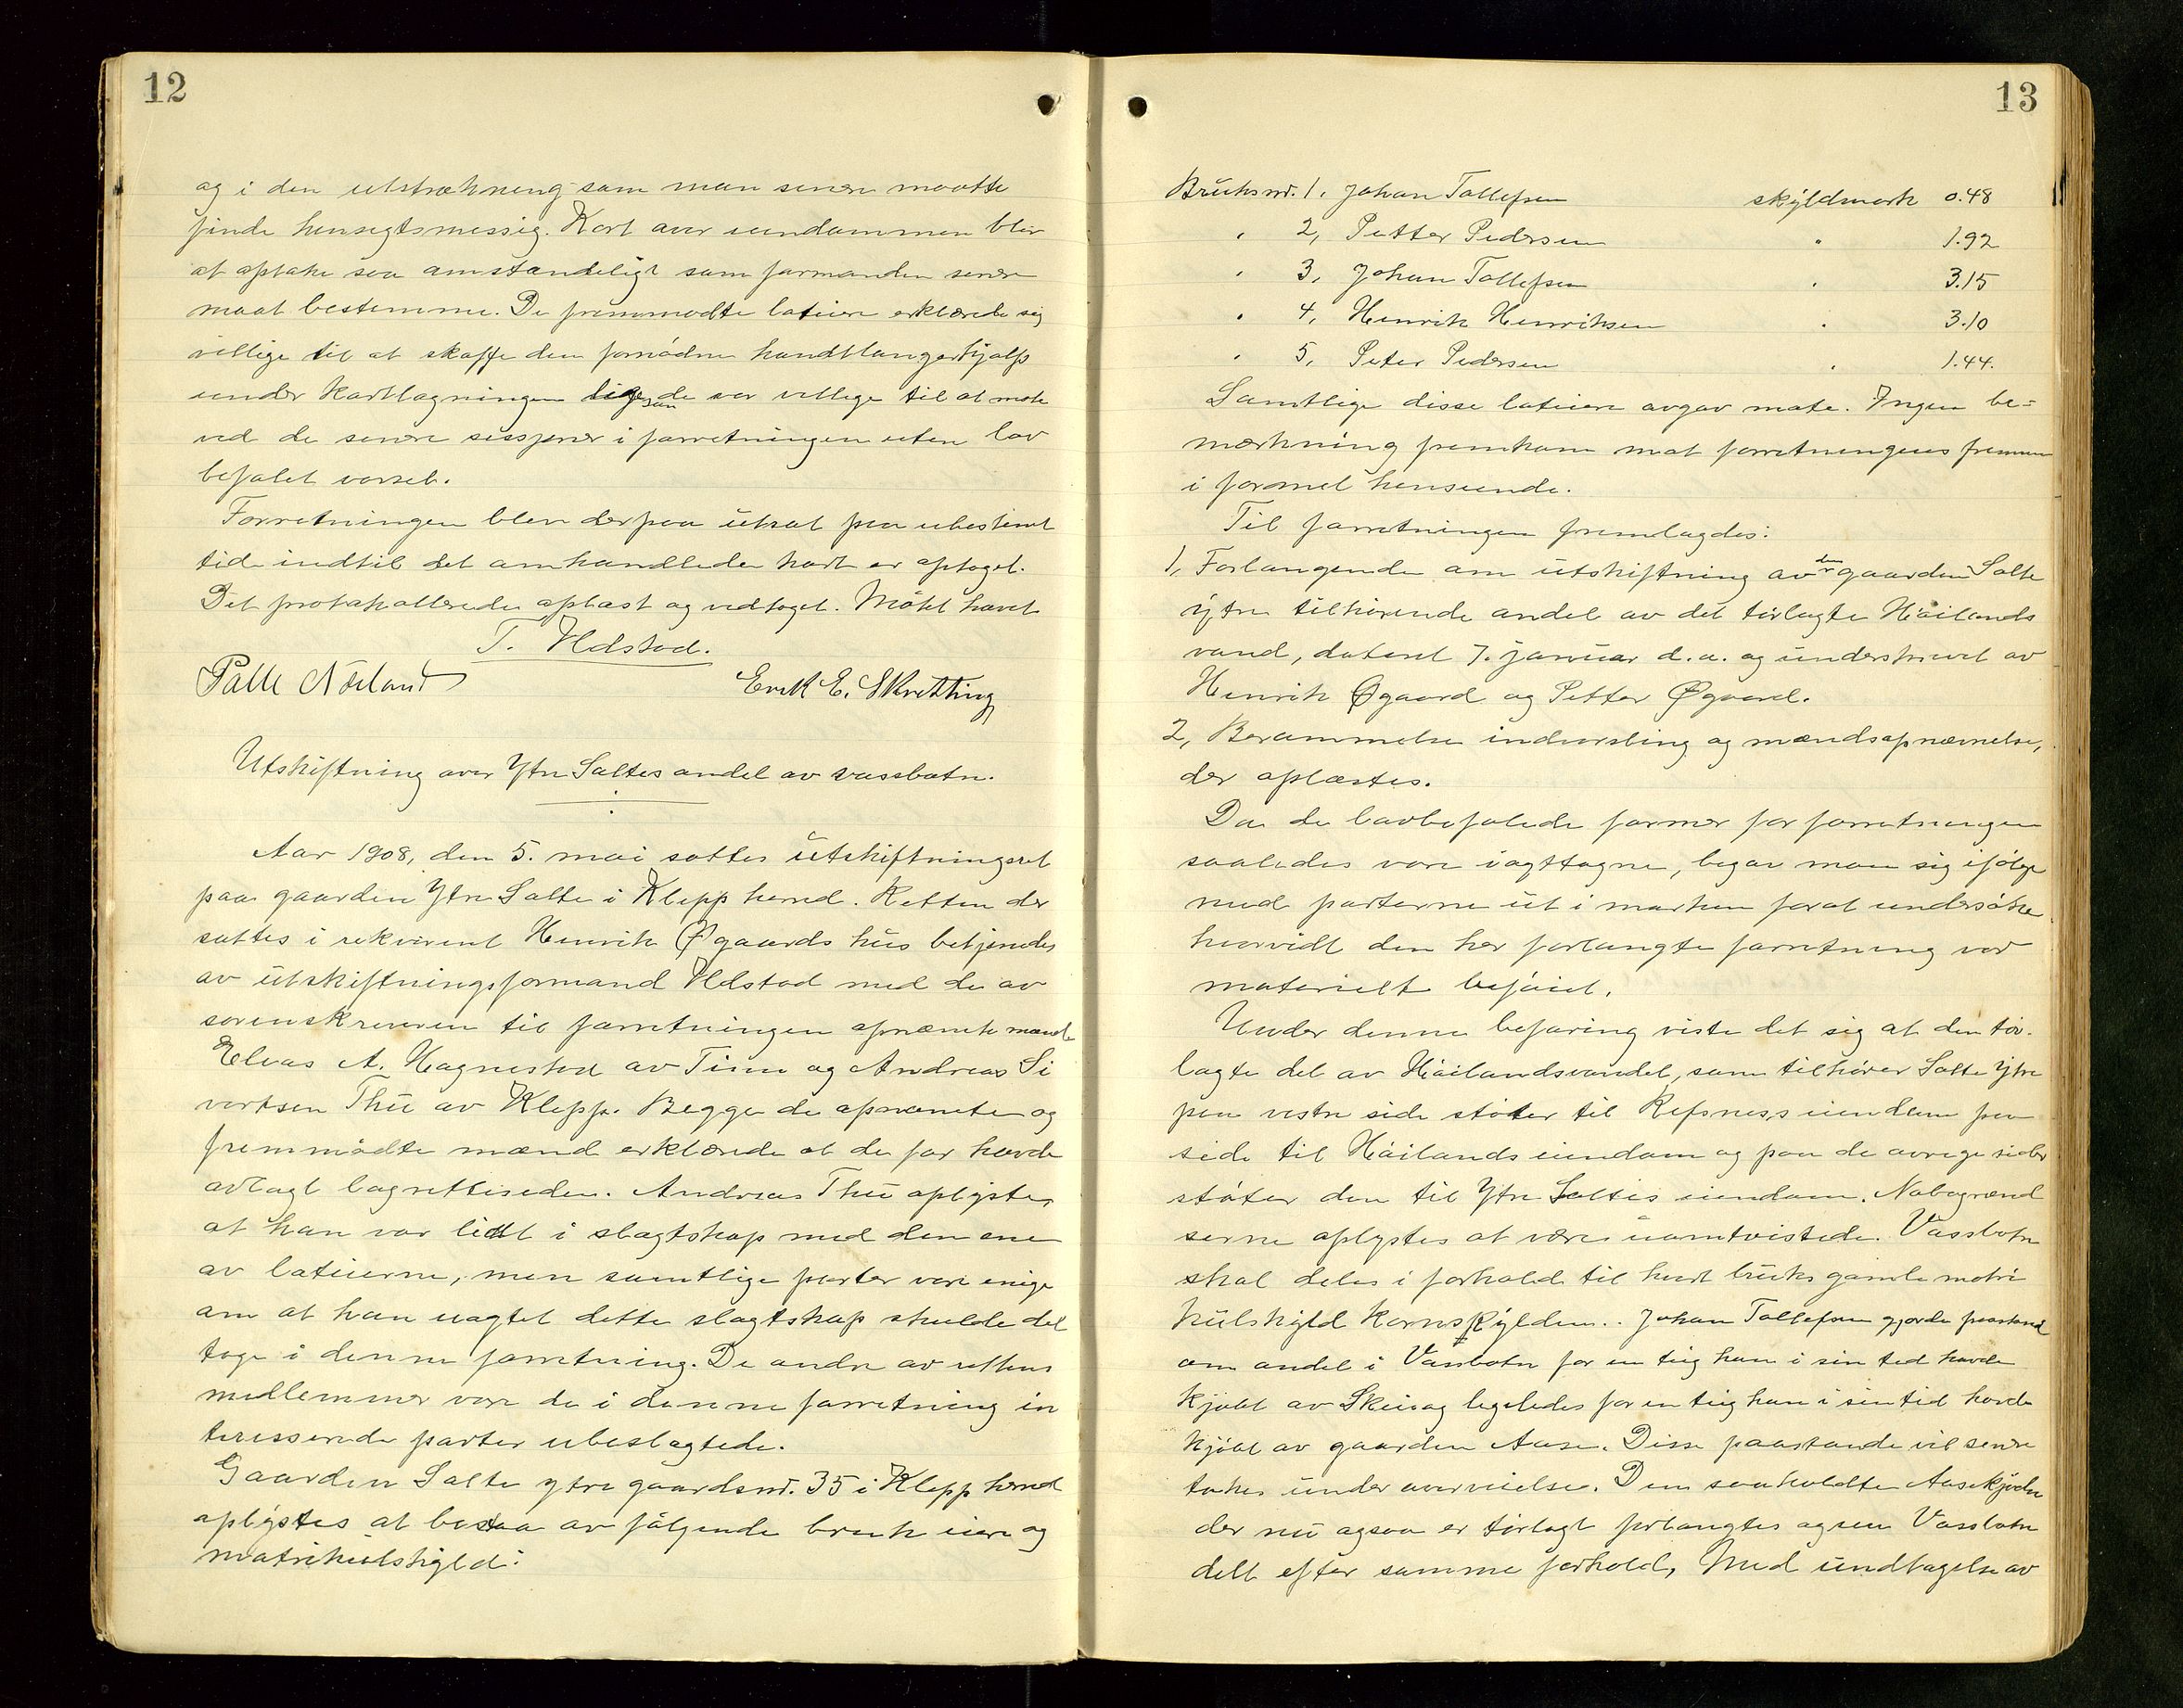 12
og i den utstrækning som man senere maatte
finde hensegtsmessig. Kart over eiendommen blir
at optake saa omstændeligt som formanden senere
maat bestemme. De fremmødte loteiere erklærede sig
villige til at skaffe den fornødne handtlangerhjælp
under kartlagningen ligesaa de var villige til at møte
ved de senere sessjoner i forretningen uten lov
befalet varsel.
Forretningen blev derpaa utsat paa ubestemt
tid indtil det omhandlede kart er optaget.
Det protokollerede oplæst og vedtaget. Møtet hævet
T. Udstad.
Palle Nærland Erik E. Skretting
Utskiftning over Ytre Saltes andel av vassbotn.
Aar 1908, den 5. mai sattes utskiftningsret
paa gaarden Ytre Salte i Klepp herred. Retten der
sattes i rekvirent Henrik Øgaards hus betjenedes
av utskiftningsformand Udstad med de av
sorenskriveren til forretningen opnævnte mænd
Elias A. Hognestad av Time og Andreas Si
vertsen Thu av Klepp. Begge de opnævnte og
fremmødte mænd erklærede at de før havde
avlagt lagretteseden. Andreas Thu oplyste,
at han var lidt i slagtskap med den ene
av lotteierne, men samtlige parter vare enige
om at han uagtet dette slagtskap skulde del
tage i denne forretning. De andre av rettens
medlemmer vare de i denne forretning in
teresserede parter ubeslagtede.
Gaarden Salte ytre gaardsnr. 35 i Klepp herred
oplystes at bestaa av følgende bruk eiere og
matrikulskyld:
13
Bruksnr. 1, Johan Tollefsen skyldmark 0.48
" 2, Petter Pedersen " 1.92
" 3, Johan Tollefsen " 3.15
" 4, Henrik Henriksen " 3.10
" 5, Peter Pedersen " 1.44.
Samtlige disse loteiere avgav møte. Ingen be=
mærkning fremkom mot forretningens fremme
i formel henseende.
Til forretningen fremlagdes:
1, Forlangende om utskiftning av den gaarden Salte
ytre tilhørende andel av det tørlagte Håilands
vand, dateret 7. januar d.a. og underskrevet av
Henrik Øgaard og Petter Øgaard.
2, Berammelse indvarsling og mændsopnævnelse,
der oplæstes.
Da de lovbefalede former for forretningen
saaledes vare iagttagne, begav man sig ifølge
med parterne ut i marken forat undersøke
hvorvidt den her forlangte forretning var
materielt beføiet.
Under denne befaring viste det sig at den tør-
lagte del av Håilandsvandet, som tilhører Salte Ytre
paa vestre side støter til Refsness eiendom paa
side til Håilands eiendom og paa de øvrige sider
støter den til Ytre Saltes eiendom. Nabogrænd
serne oplystes at være uomtvistede. Vassbotn
skal deles i forhold til hvert bruks gamle matri
kulskyld Kornskylden. Johan Tollefsen gjorde paastand
om andel i Vassbotn for en teig han i sin tid havde
kjøbt av Skeie og legeledes for en teig han i sin tid havde
kjøbt av gaarden Aase. Disse paastande vil senere
takes under overveielse. Den saakaldte Aasekjodn
der nu ogsaa er tørlagt forlangtes ogsaa Vassbotn
delt efter samme forhold, Med undtagelse av